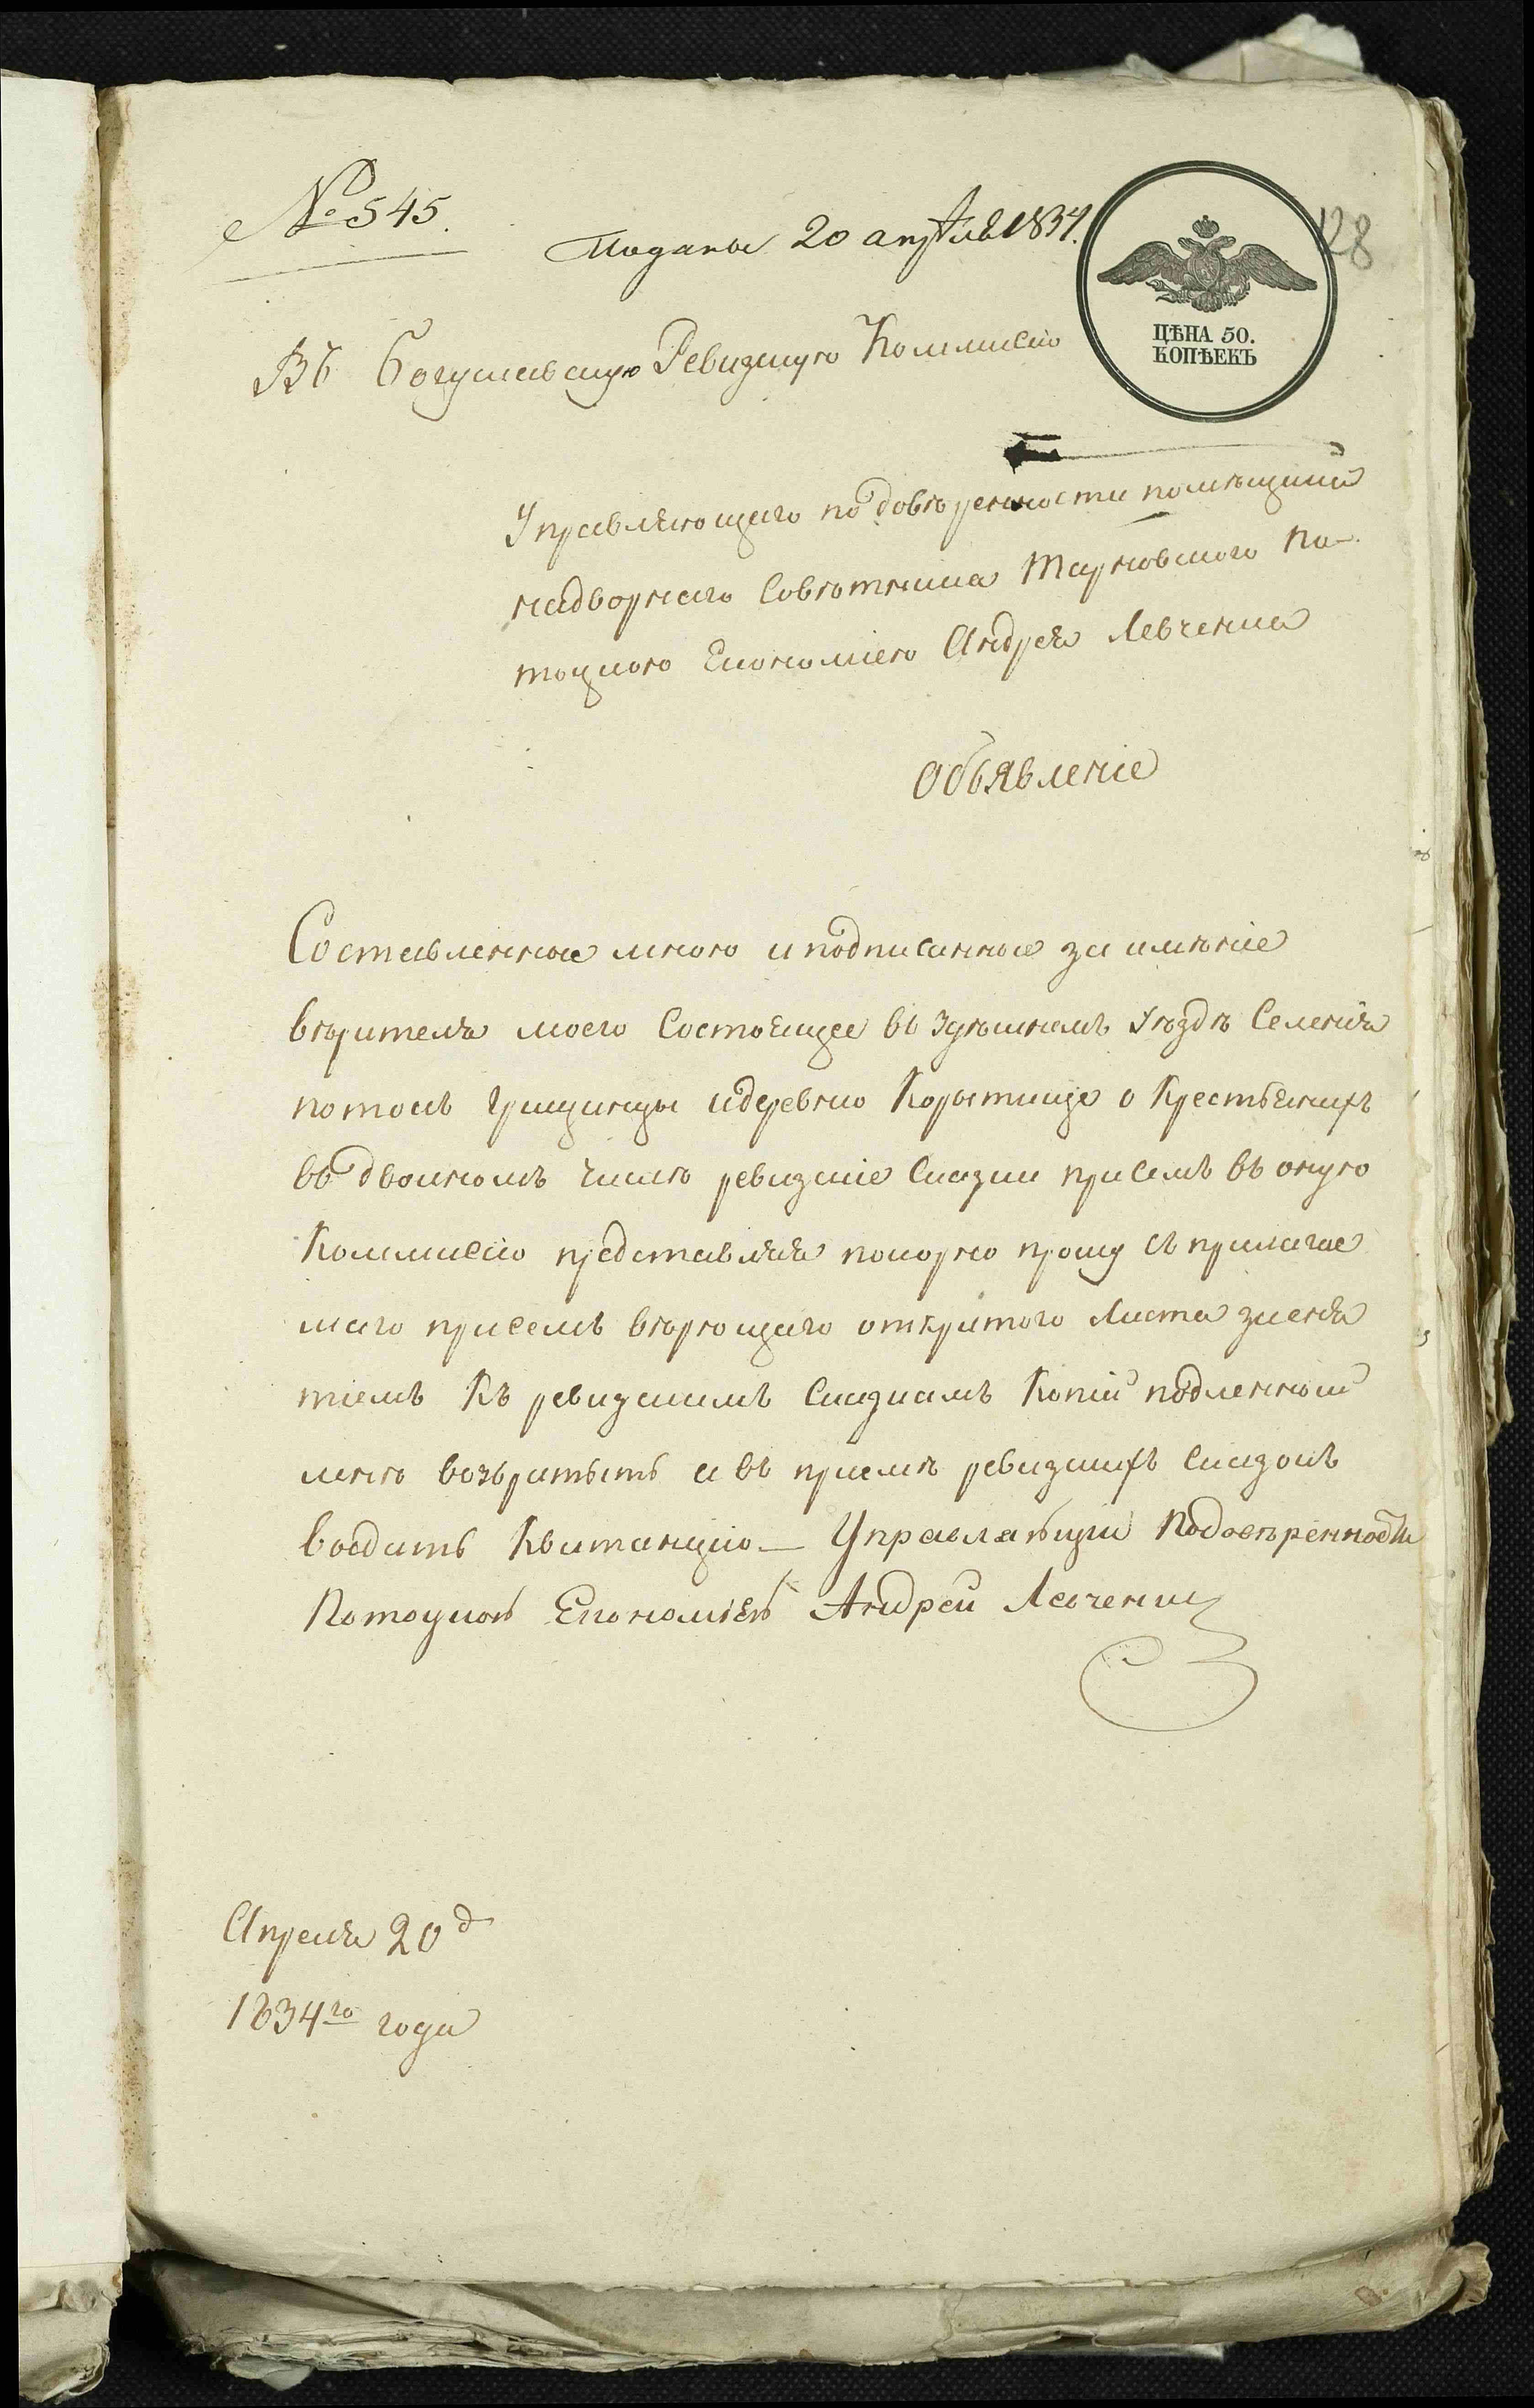 № 545.
Подано 20 апреля 1834.
128
ЦѢНА 50.
КОПѢЕКЪ
Въ Богуславскую Ревизкую Коммисію
Управляющаго по довѣренности помѣщика
надворнаго Совѣтника Тарновского По-
тоцкою Економіею Андрея Левченка
Объявленіе
Составленные мною и подписанные за имѣніе
вѣрителя моего Состоящее въ здѣшнемъ Уѣздѣ Селенія
потокъ Грищинцы и деревню Корытище о Крестьянахъ
въ двойномъ числѣ ревизкіе Сказки присемъ въ оную
Коммисію представляя покорно прошу съ прилагае
маго присемъ вѣрющаго открытого Листа
тіемъ Къ ревизкимъ Сказкамъ Копій подленной
мнѣ возвратыть а въ приемѣ ревизкихъ Сказокъ
воодать Квитанцію — Управлающи По довѣренности
Потоцкою Економіею Андрей Левченко
Апреля 20 д
1834го года